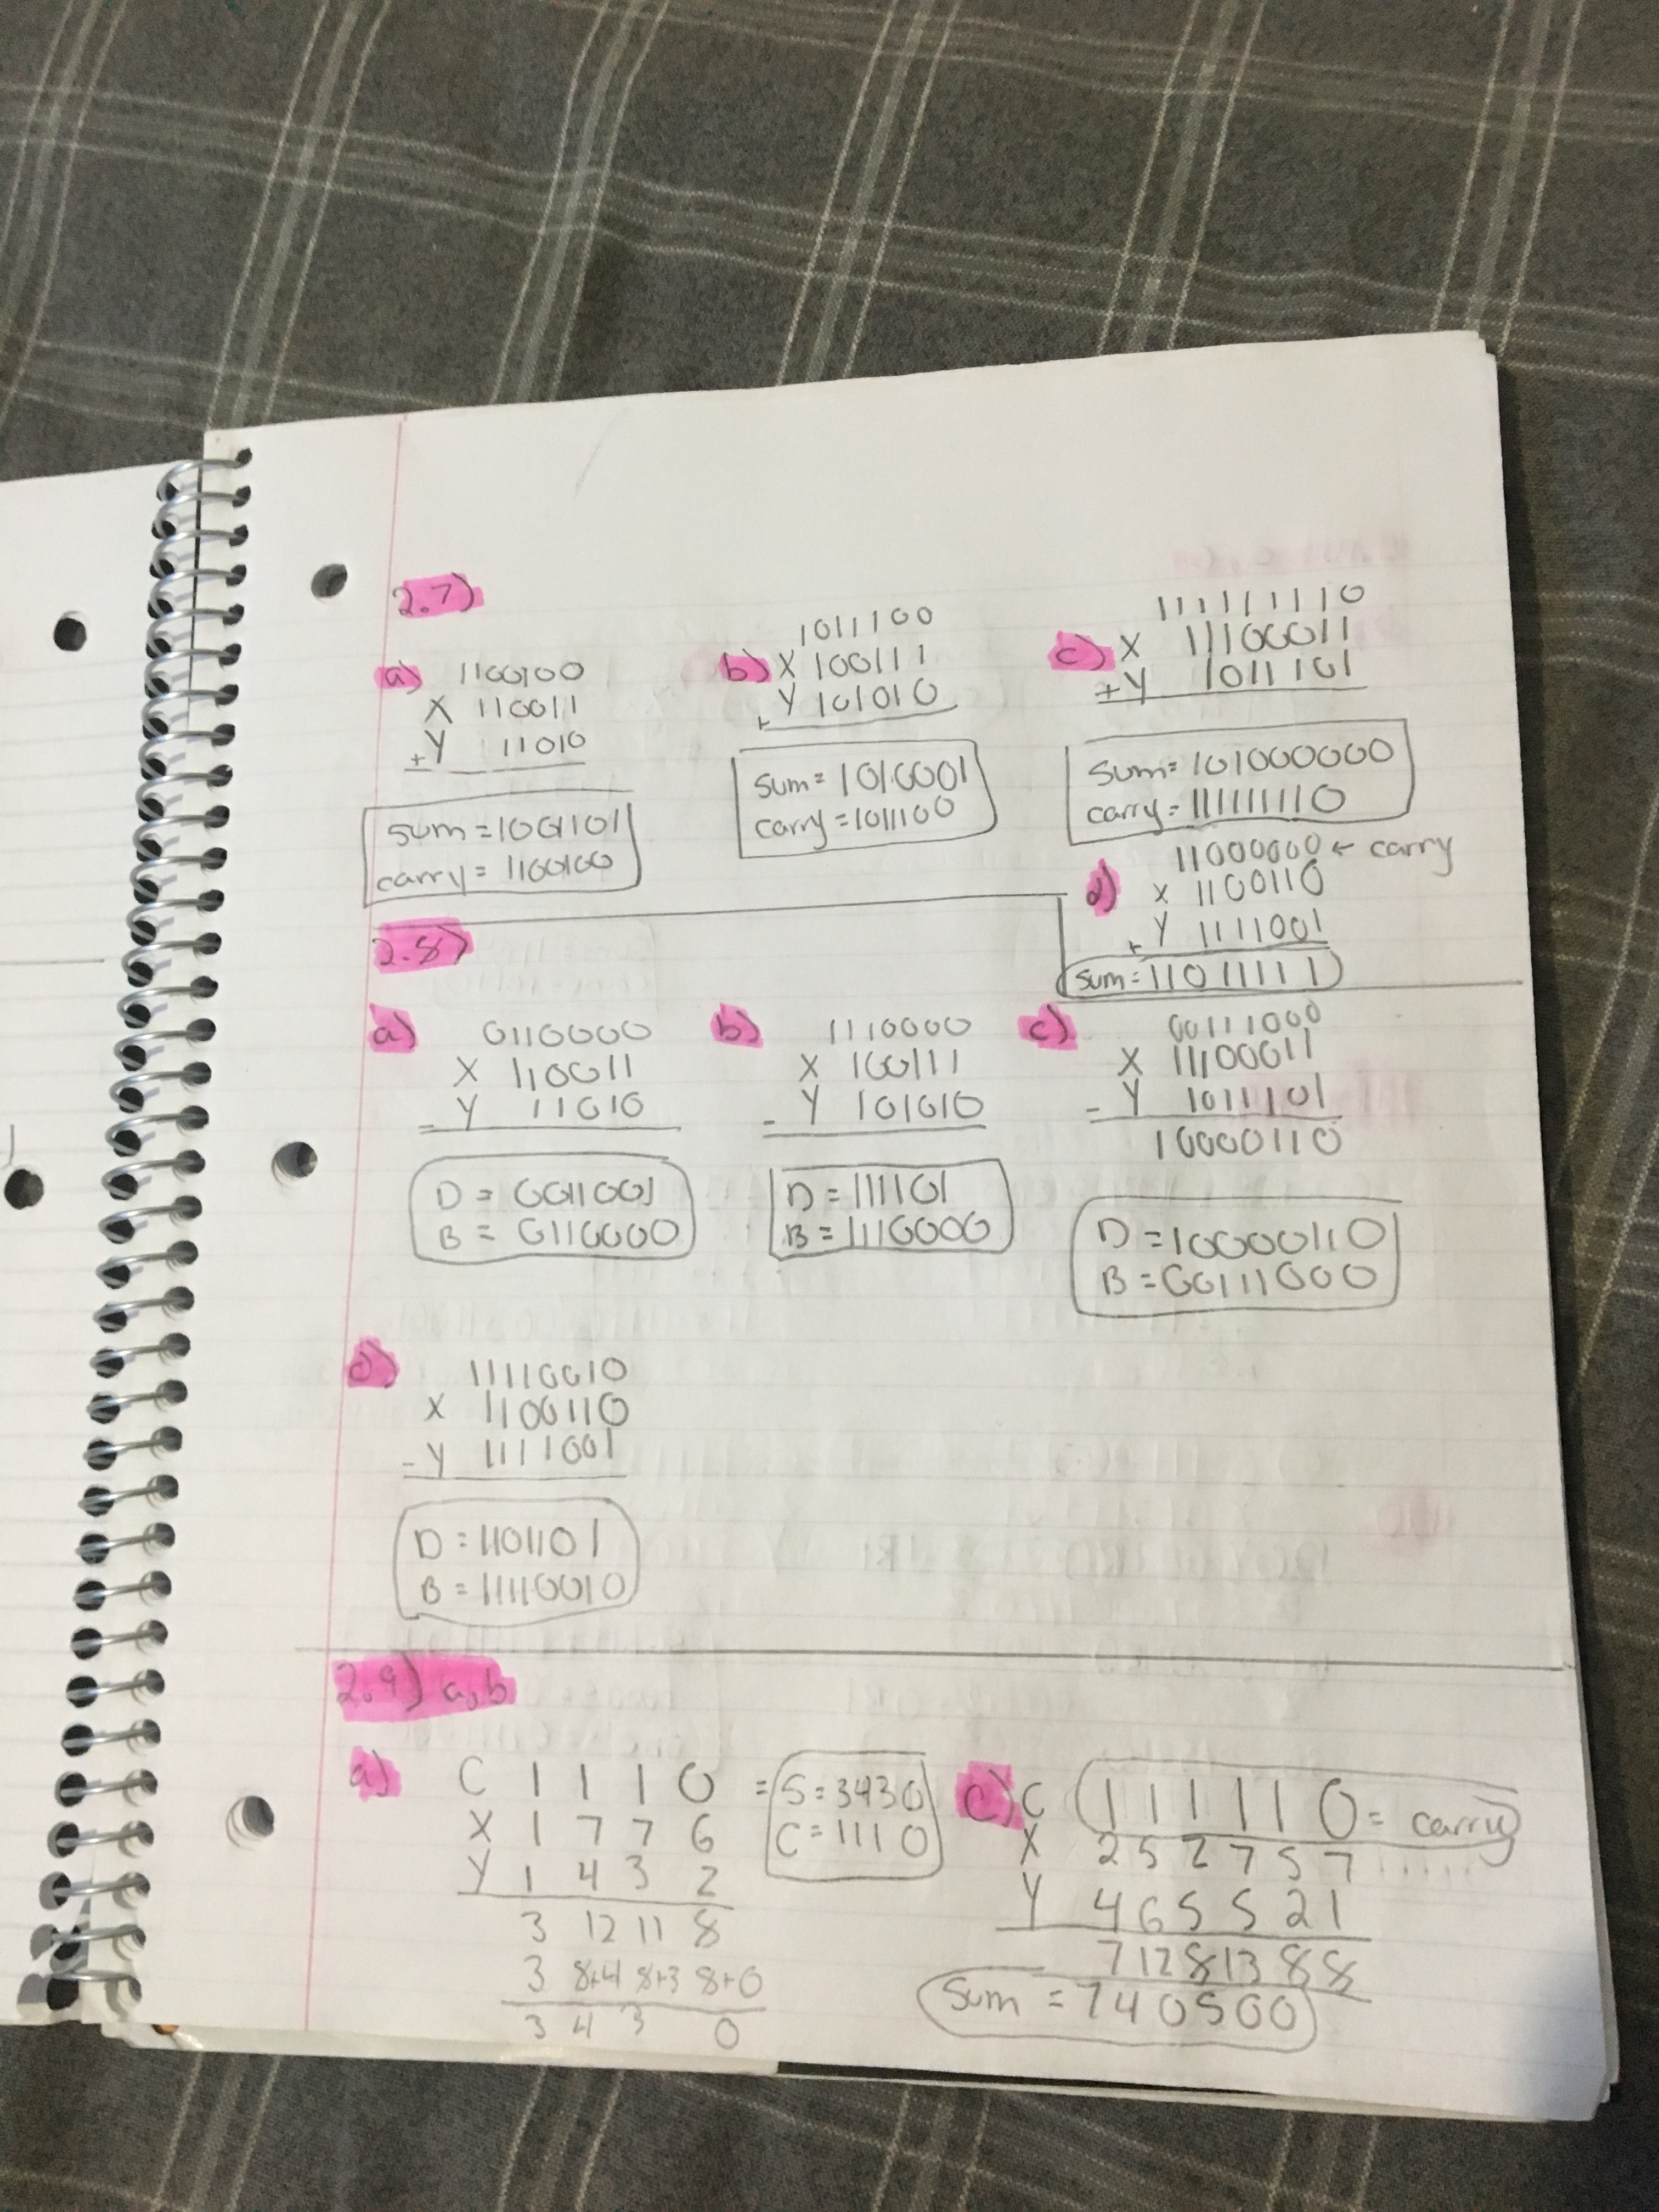 2.7)
a) 1100100
X 110011
+Y 11010
sum = 1001101
carry = 1100100
1011100
b) X 100111
+ Y 101010
sum = 1010001
carry = 1011100
111111110
c) X 11100011
+Y 1011101
sum = 101000000
carry = 111111110
11000000 ← carry
d) X 1100110
+ Y 1111001
sum = 11011111
2.8)
a) 0110000
X 110011
- Y 11010
D = 0011001
B = 0110000
b) 1110000
X 100111
- Y 101010
D = 111101
B = 1110000
c) 00111000
X 11100011
- Y 1011101
10000110
D = 10000110
B = 00111000
d) 11110010
X 1100110
- Y 1111001
D = 1101101
B = 11110010
2.9) a,b
a) C 1 1 1 0 = S = 3430
X 1 7 7 6 C = 1110
Y 1 4 3 2
3 12 11 8
3 8+4 8+3 8+0
3 4 3 0
C) C 1 1 1 1 1 0 = carry
X 2 5 2 7 5 7
Y 4 6 5 5 2 1
7 12 8 13 8 8
Sum = 740500